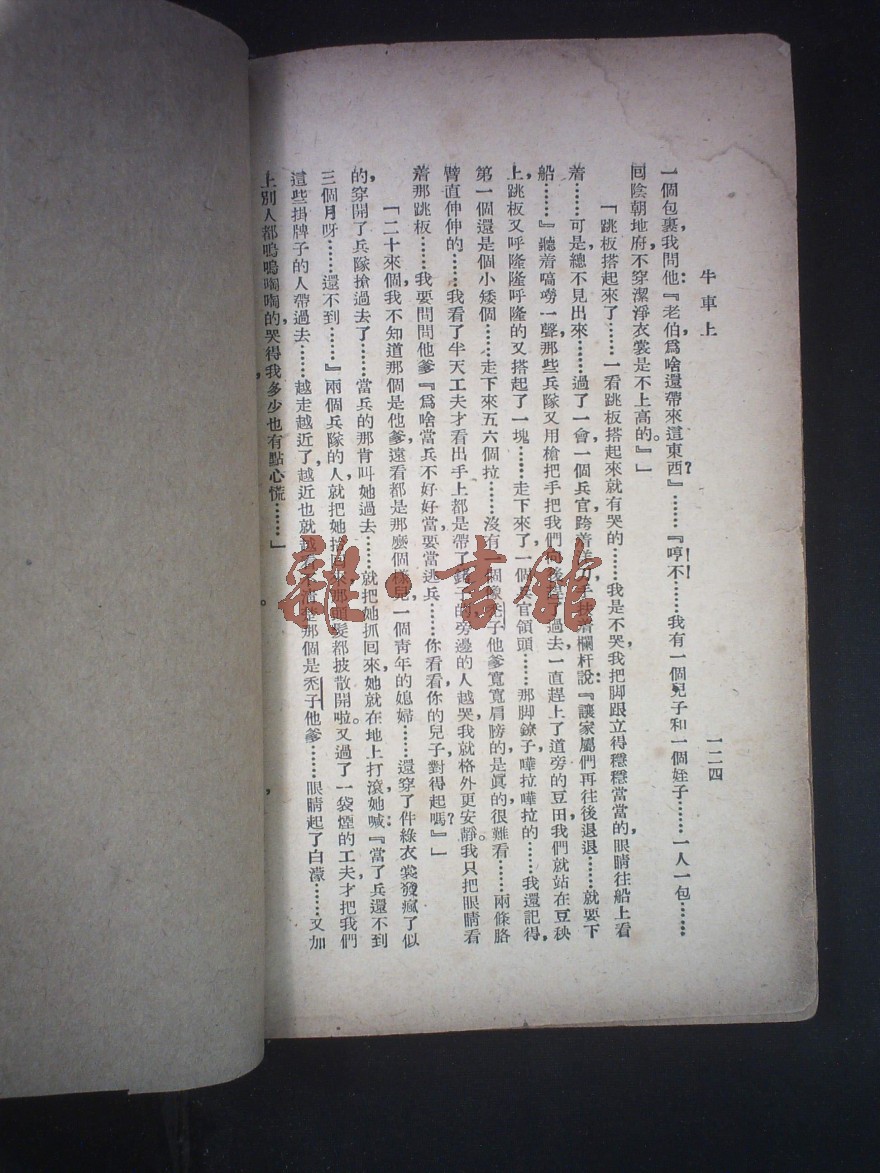 牛車上
一二四
一個包裹，我問他：『老伯，爲啥還帶來這東西？』……『哼不！……我有一個兒子和一個姪子……一人一包……
回陰朝地府，不穿潔淨衣裳是不上高的。』」
「跳板搭起來了……一看跳板搭起來就有哭的……我是不哭，我把脚跟立得穩穩當當的，眼睛往船上看
着……可是，總不見出來……過了一會，一個兵官，跨着洋刀，手扶着欄杆說：『讓家屬們再往後退退……就要下
船……』聽着嗃嘮一聲，那些兵隊又用槍把手把我們向後趕了過去，一直趕上了道旁的豆田，我們就站在豆秧
上，跳板又呼隆隆呼隆的又搭起了一塊……走下來了，一個兵官領頭……那脚鐐子，嘩拉嘩拉的……我還記得，
第一個還是個小矮個……走下來五六個拉……沒有一個像禿子他爹寬寬肩膀的，是眞的，很難看……兩條胳
臂直伸伸的……我看了半天工夫，才看出手上都是帶了銬子的。旁邊的人越哭，我就格外更安靜。我只把眼睛看
着那跳板……我要問問他爹『爲啥當兵不好好當，要當逃兵……你看看，你的兒子，對得起嗎？』」
「二十來個，我不知道那個是他爹，遠看都是那麼個樣兒。一個靑年的媳婦……還穿了件綠衣裳，發瘋了似
的，穿開了兵隊搶過去了……當兵的那肯叫她過去……就把她抓回來，她就在地上打滾，她喊：『當了兵還不到
三個月呀……還不到……』兩個兵隊的人，就把她抬回來，那頭髮都披散開啦。又過了一袋煙的工夫，才把我們
這些掛牌子的人帶過去……越走越近了，越近也就越看不淸楚那個是禿子他爹……眼睛起了白濛……又加
上別人都嗚嗚啕啕的，哭得我多少也有點心慌……」